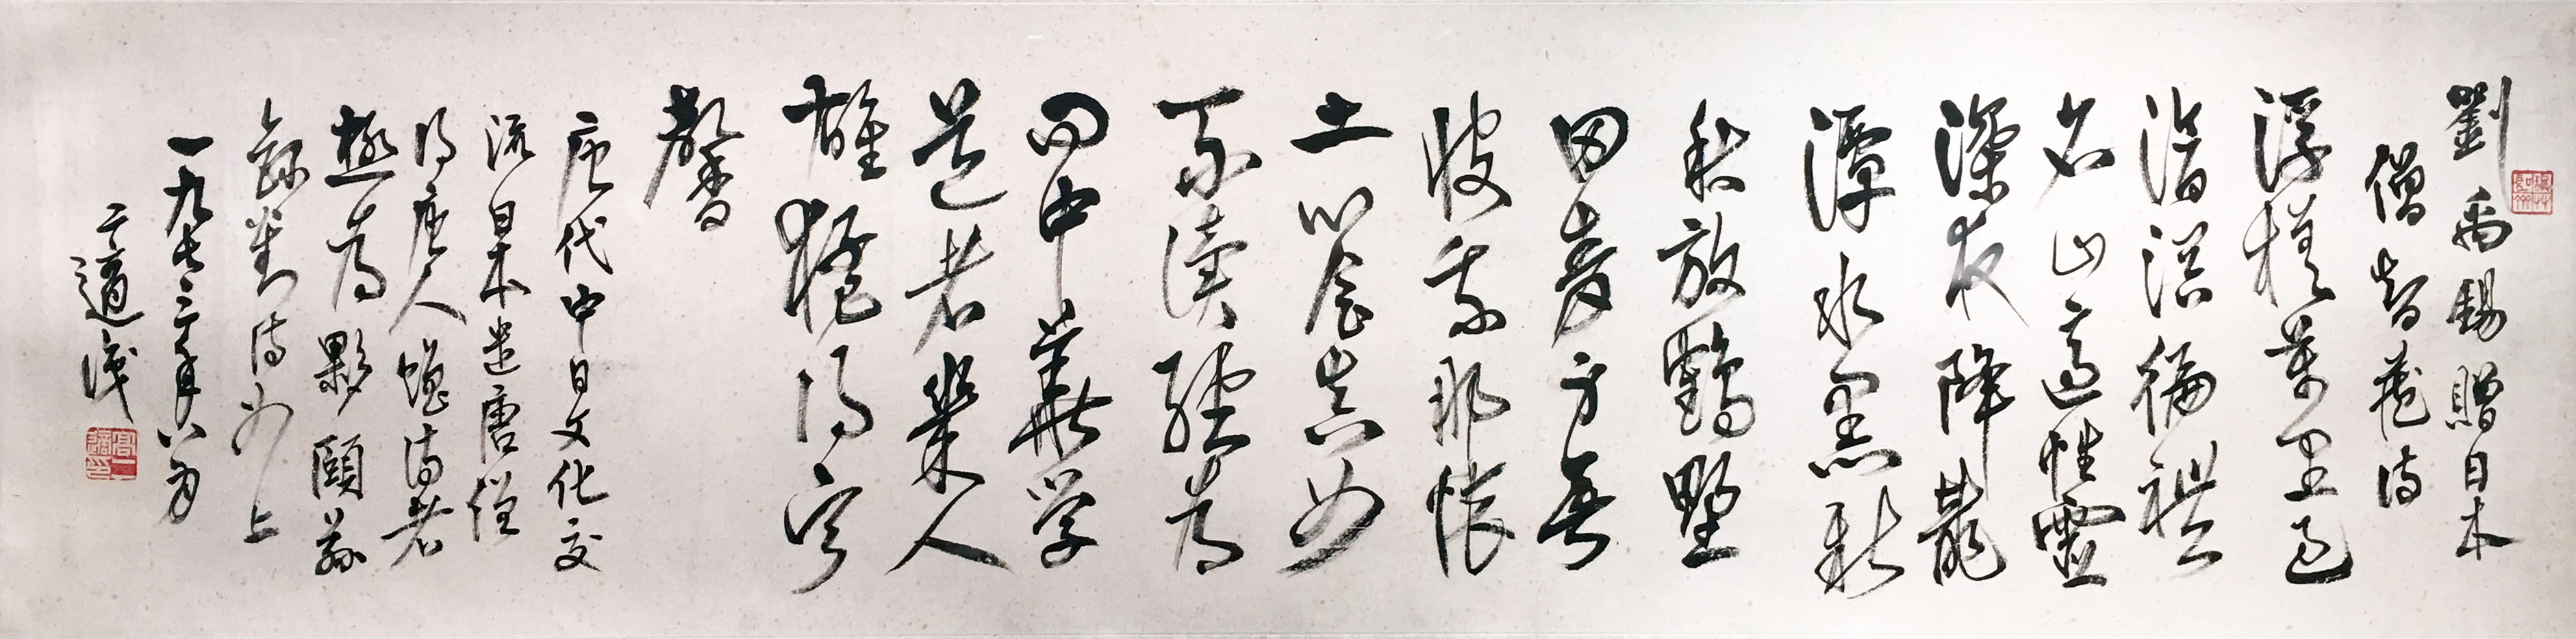 劉禹錫贈日本
僧智藏詩
浮杯萬里過
滄溟徧禮
名山適性靈
深夜降龍
潭水黑新
秋放鶴野
田青身無
彼我那懷
土心會真如
不讀經為
問中華学
道者幾人
雄猛得寧
馨
唐代中日文化交
流日本遣唐僧
得唐人贈詩者
極為夥頤茲
錄劉詩如上
一九七三年八月
二適識